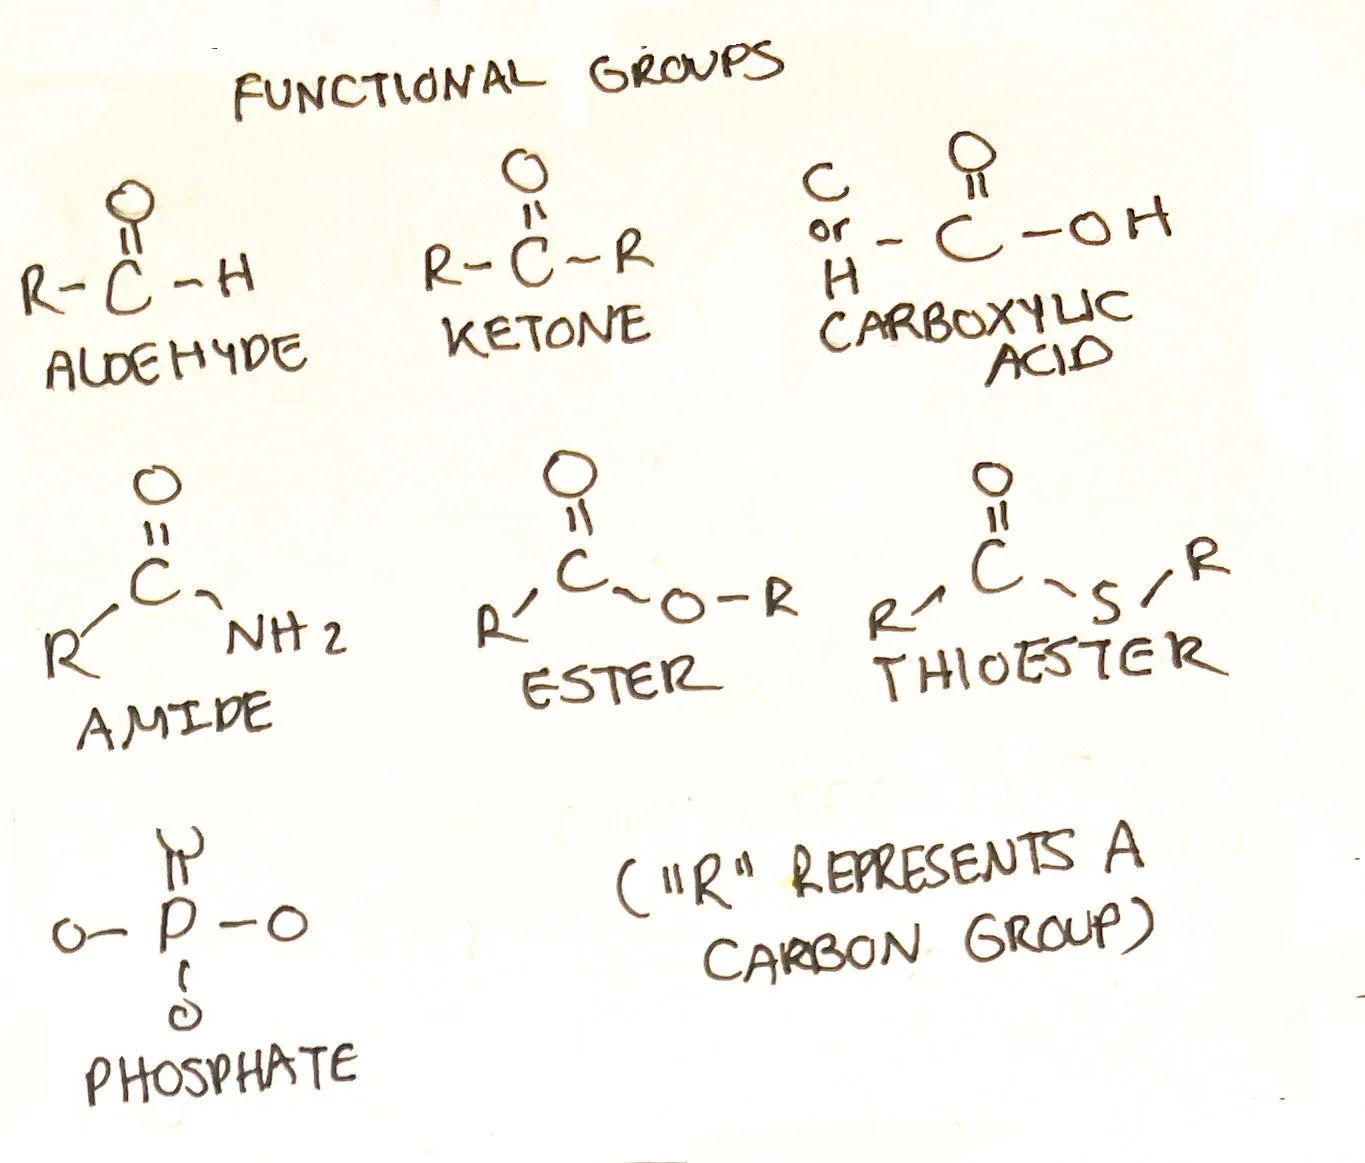 FUNCTIONAL GROUPS
O
||
R-C-H
ALDEHYDE
O
||
R-C-R
KETONE
C
or
H
O
||
-C-OH
CARBOXYLIC
ACID
O
||
C
R
NH2
AMIDE
O
||
C
R
O-R
ESTER
O
||
C
R
S
R
THIOESTER
||
O-P-O
O
PHOSPHATE
("R" REPRESENTS A
CARBON GROUP)